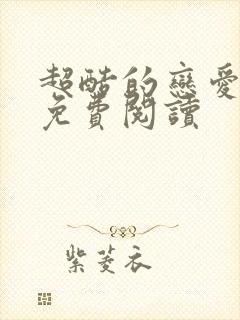 超酷的戀愛
免費閱讀
紫菱衣